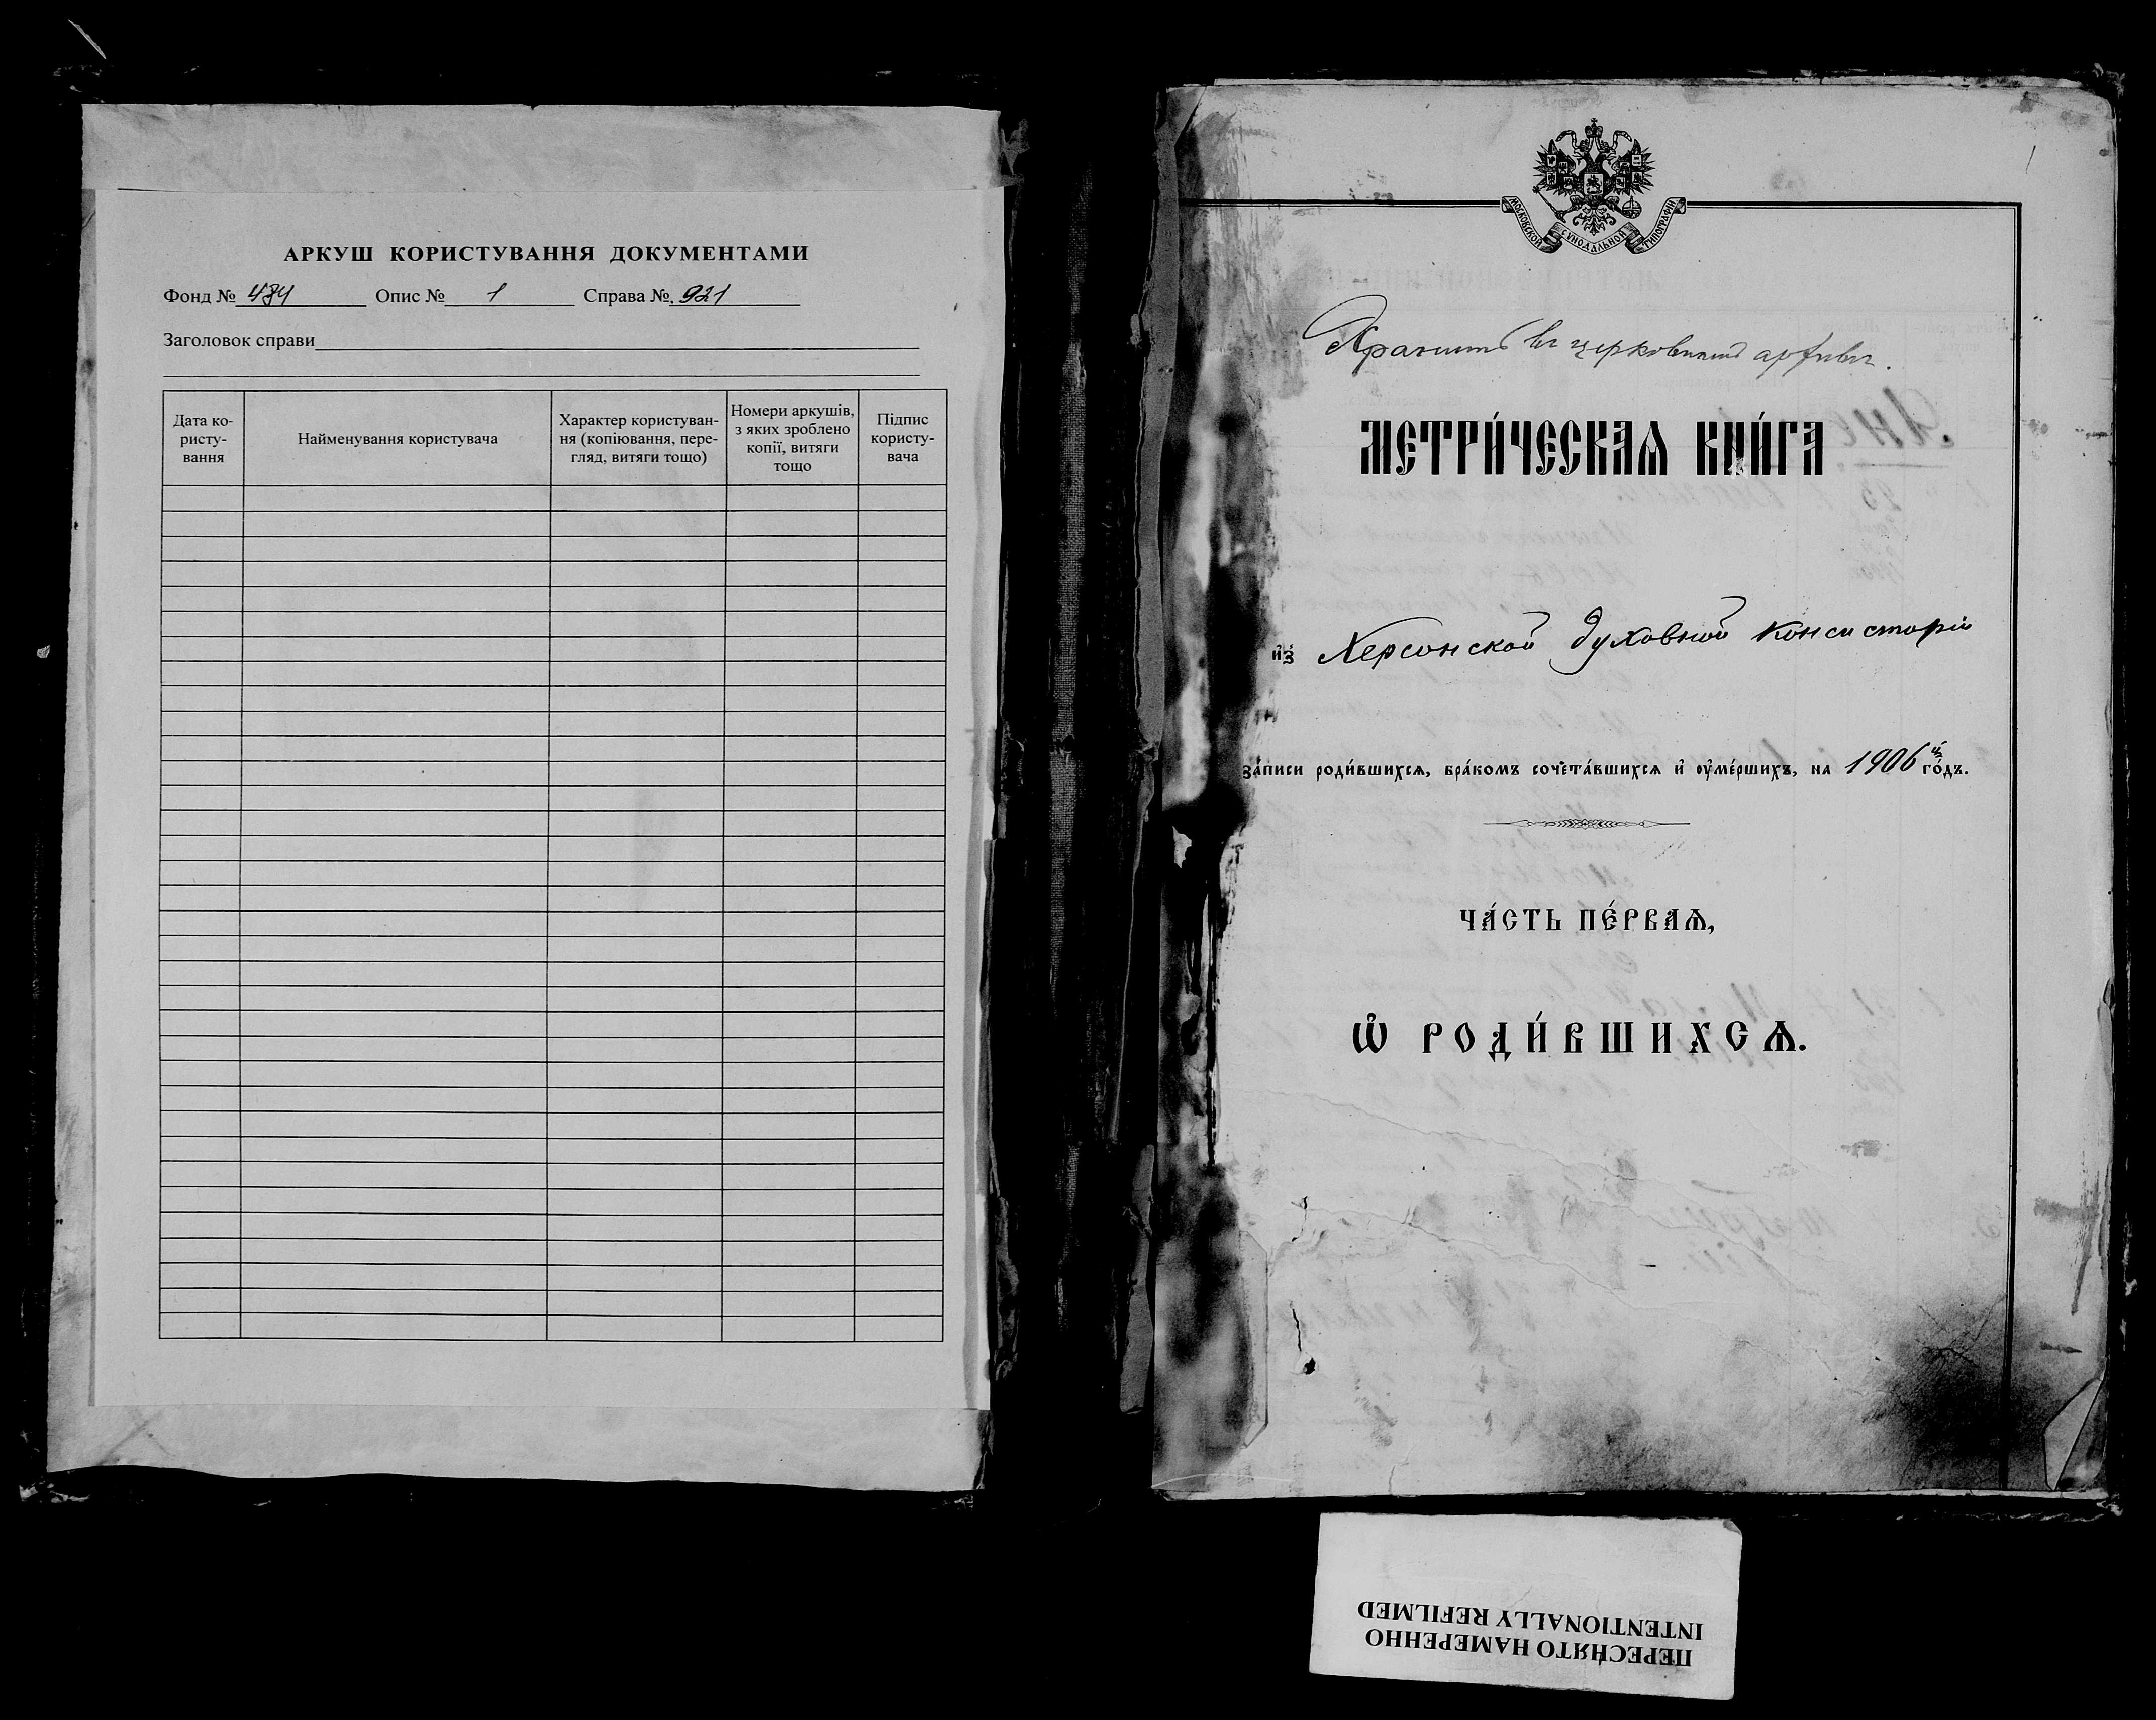 АРКУШ КОРИСТУВАННЯ ДОКУМЕНТАМИ
Фонд № 484 Опис № 1 Справа № 921
Заголовок справи
Дата ко-
ристу-
вання
Найменування користувача
Характер користуван-
ня (копіювання, пере-
гляд, витяги тощо)
Номери аркушів,
з яких зроблено
копії, витяги
тощо
Підпис
користу-
вача
1
МОСКОВСКОЙ СѴНОДАЛЬНОЙ ТИПОГРАФІИ
Хранить въ церковномъ архивѣ.
МЕТРИ́ЧЕСКАѦ КНИ́ГА
и҆з̾ Херсонской Духовной Консисторіи
за́писи роди́вшихсѧ, бра́комъ сочета́вшихсѧ и҆ ѹ҆ме́ршихъ, на 1906й го́дъ.
ЧА́СТЬ ПЕ́РВАѦ,
Ѽ РОДИ́ВШИХСѦ.
ПЕРЕСНЯТО НАМЕРЕННО
INTENTIONALLY REFILMED